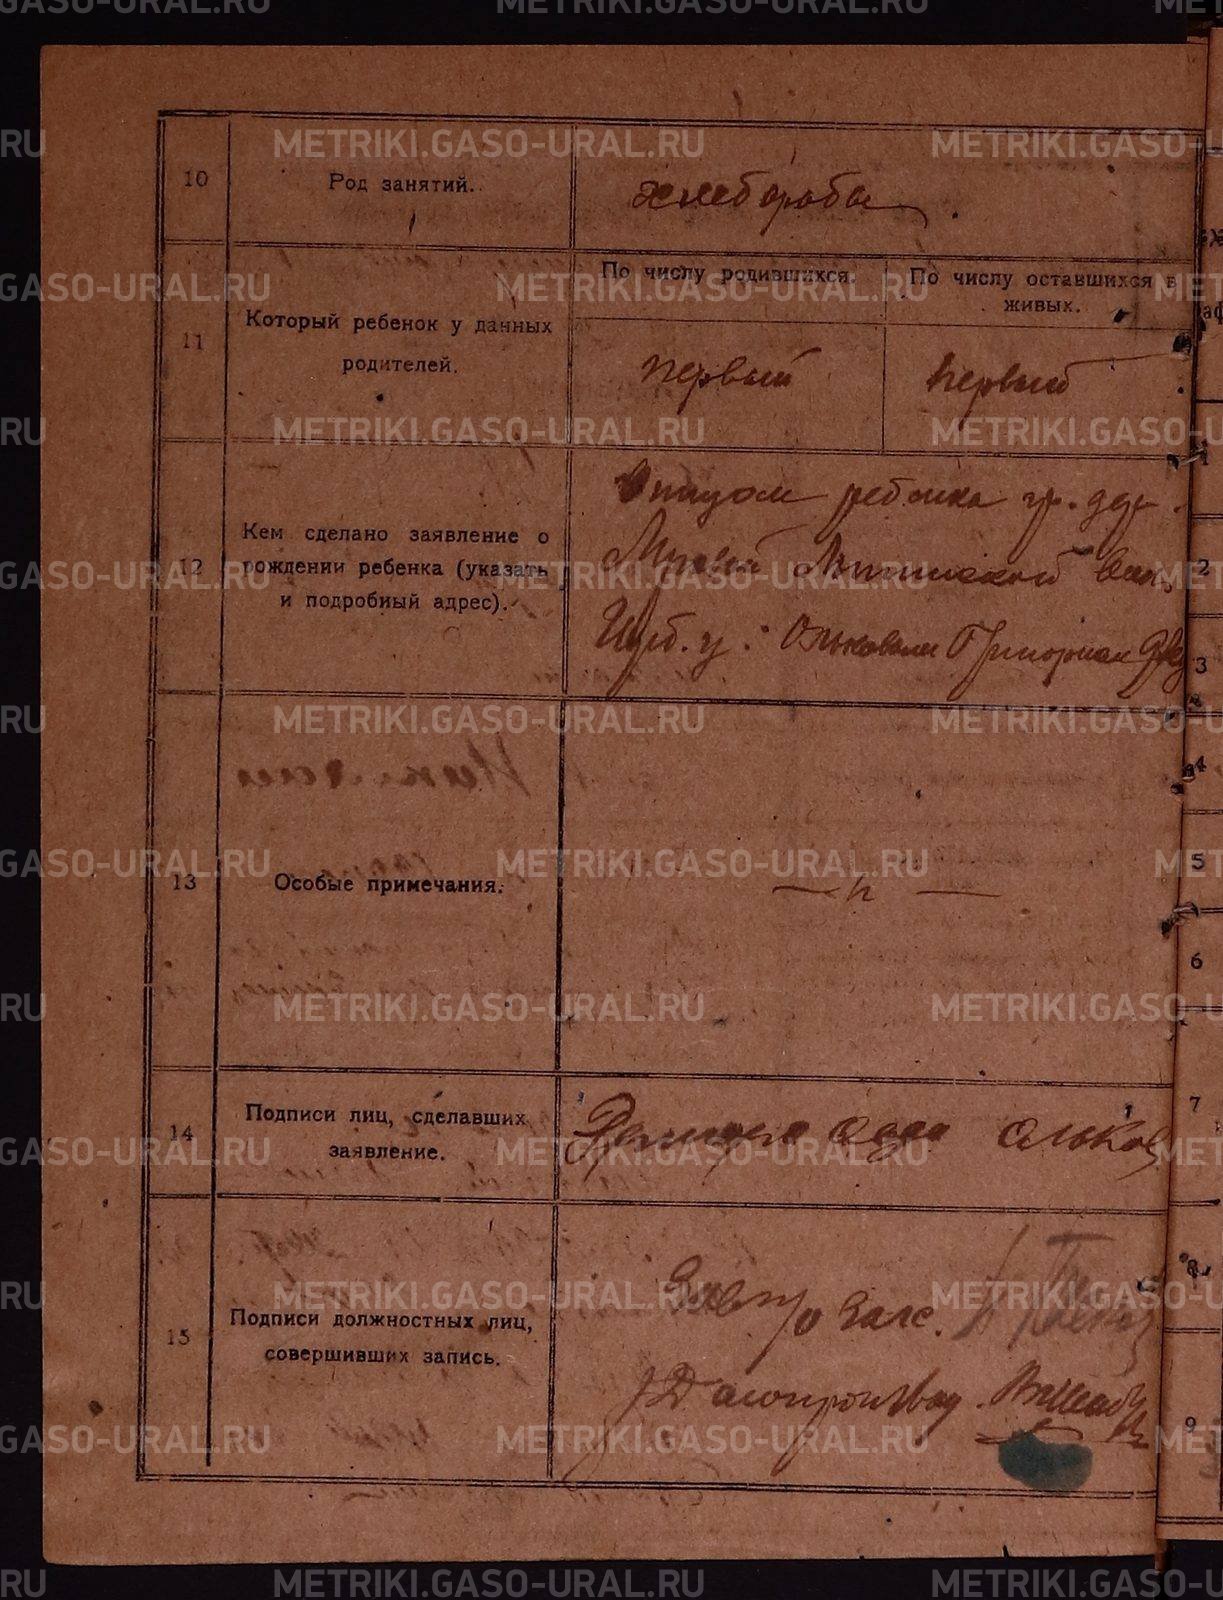 10
Род занятий.
хлеборобы
11
Который ребенок у данных
родителей.
По числу родившихся.
По числу оставшихся в
живых.
первый
первый
12
Кем сделано заявление о
рождении ребенка (указать
и подробный адрес).
Отцом ребенка гр. дер.
вол,
Ирб. у. Ольковым Григорием
13
Особые примечания.
14
Подписи лиц, сделавших
заявление.
Ольков
15
Подписи должностных лиц,
совершивших запись.
Зав. п/о Загс.
Делопроизвод.
1
2
3
4
5
6
7
8
9
METRIKI.GASO-URAL.RU